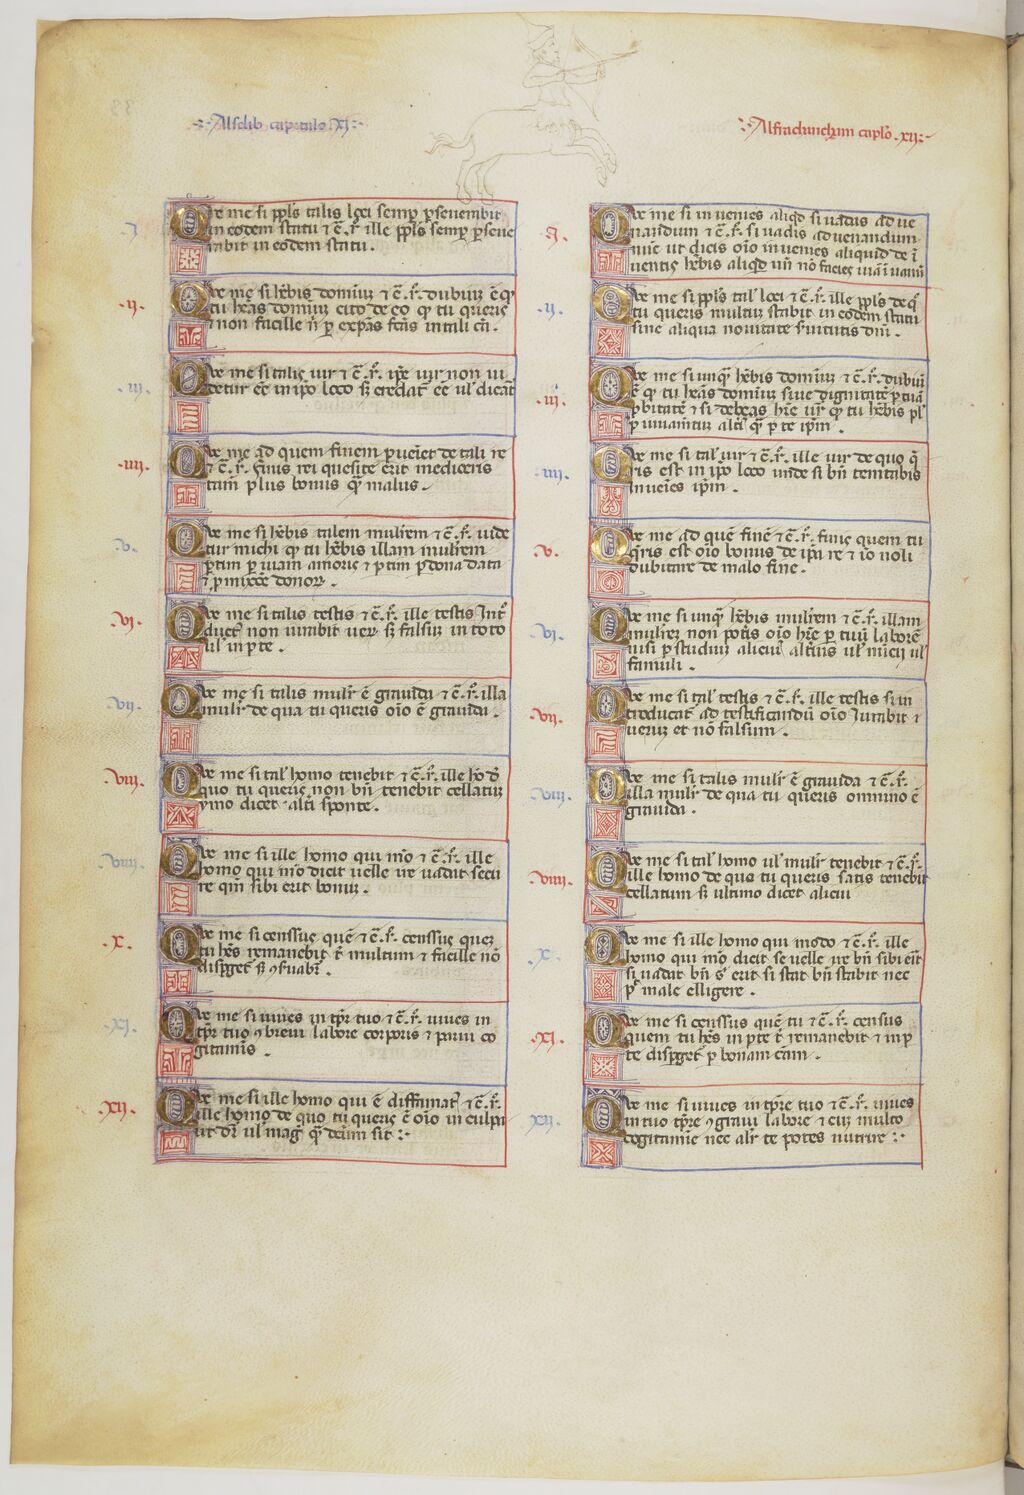 Alselib capitulo XI
J.
Qᵉre me si ppl̄s talis loci semp̱ p̱seuerabit
in eodem statu ⁊ c̄. r̄ ille ppl̄s semp̱ p̱seue
rabit in eodem statu.
.ii.
Qᵉre me si hēbis dominiū ⁊ c̄. r̄. dubiuꝫ ē qͥ
tu heas dominiū cito de eo qͥ tu queris
⁊ non facille
.iii.
Qᵉre me si talis uir ⁊ c̄. r̄. ipse uir non ui
detur eē in ip̄o loco sꝫ credat̄ eē ul̓ dicat̄
.iiii.
Qᵉre me ad quem finem p̱ueiet de tali re
⁊ c̄. r̄. finis rei quesite erit mediocris
tam̄ plus bonus qͣ malus.
.v.
Qᵉre me si hēbis talem mulr̄em ⁊ c̄. r̄. uide
tur michi qͥ tu hēbis illam mulr̄em
p̱tim p̱ uiam amoris ⁊ p̱tim p̱ dona data
.vi.
Qᵉre me si talis testis ⁊ c̄. r̄. ille testis Int̄
duct̄ non iurabit ueꝝ sꝫ falsuꝫ in toto
ul̓ in p̱te.
.vii.
Qᵉre me si talis mulr̄ ē grauida ⁊ c̄. r̄. illa
mulr̄ de qua tu queris oīo ē grauida.
.viii.
Qᵉre me si tal̓ homo tenebit ⁊ c̄. r̄. ille hō d̄
quo tu queris non bn̄ tenebit cellatuꝫ
ymo dicet alt̄i sponte.
.viiii.
Qᵉre me si ille homo qui mō ⁊ c̄. r̄. ille
homo qui mō dicit uelle ire uadat secu
re qm̄ sibi erit bonuꝫ.
.x.
Qᵉre me si censsus quē ⁊ c̄. r̄. censsus queꝫ
tu hēs remanebit t̄ multum ⁊ facille nō
disp̱get̄ sꝫ ꝯseruabit̄.
.xi.
Qᵉre me si uiues in tp̄r tuo ⁊ c̄. r̄. uiues in
tp̄r tuo ꝯ breui labore corporis ⁊ parui co
gitaminis.
.xii.
Qᵉre me si ille homo qui ē diffamat̄ ⁊ c̄. r̄.
ille homo de quo tu queris ē oīo in culpa
ut dr̄ ul̓ mag̓ qͣ dictum sit
Alfradunchum capl̓o .xii.
J.
Qᵉre me si inuenies aliqd̄ si uadis ad ue
nandum ⁊ c̄. r̄. si uadis ad uenandum
nūc ut dicis oīo inuenies aliquid de ī
uentis hēbis aliqd̄ un̄ nō facies uiā ī uanū
.ii.
Qᵉre me si ppl̄s tal̓ loci ⁊ c̄. r̄. ille ppl̄s de qͦ
tu queris multuꝫ stabit in eodem statu
sine aliqua nouitate s̄uitutis dnī.
.iii.
Qᵉre me si unqͣ hēbis dominiū ⁊ c̄. r̄. dubiuꝫ
ē qͥ tu heas dominiū siue dignitatē p̱ tuā
p̱bitatē ⁊ si debeas hr̄e uir̄ qͥ tu hēbis pl̓
p̱ iuuamtuꝫ alt̄i qͣ p̱ te ip̄m.
.iiii.
Qᵉre me si tal̓ uir ⁊ c̄. r̄. ille uir de quo q̄
ris est in ip̄o loco unde si bn̄ temtabis
inueies ip̄m.
.v.
Qᵉre me ad quē finē ⁊ c̄. r̄. finis quem tu
q̄ris est oīo bonus de ip̄a re ⁊ iō noli
dubitare de malo fine.
.vi.
Qᵉre me si unqͣ hēbis mulr̄em ⁊ c̄. r̄. illam
mulr̄eꝫ non pot̄is oīo hr̄e p̱ tuū laborē
nisi p̱ studiuꝫ alicui alt̄ius ul̓ nūcii ul̓
famuli.
.vii.
Qᵉre me si tal̓ testis ⁊ c̄. r̄. ille testis si in
troducat̄ ad testificandū oīo Iurabit ⁊
ueruꝫ et nō falsum.
.viii.
Qᵉre me si talis mulr̄ ē grauida ⁊ c̄. r̄.
illa mulr̄ de qua tu queris omnino ē
grauida.
.viiii.
Qᵉre me si tal̓ homo ul̓ mulr̄ tenebit ⁊ c̄. r̄.
ille homo de quo tu queris satis tenebit
cellatum sꝫ ultimo dicet alicui
.x.
Qᵉre me si ille homo qui modo ⁊ c̄. r̄. ille
homo qui mō dicit se uelle ire bn̄ sibi eit̄
si uadat bn̄ s̓ erit si stat bn̄ stabit nec
pͭ male elligere.
.xi.
Qᵉre me si censsus quē tu ⁊ c̄. r̄. census
quem tu hēs in p̱te t̄ remanebit ⁊ in p̱
te disp̱get̄ p̱ bonam cām.
.xii.
Qᵉre me si uiues in tp̄re tuo ⁊ c̄. r̄. uiues
in tuo tp̄re ꝯ graui labore ⁊ cuꝫ multo
cogitamīe nec alr̄ te potes nutrire